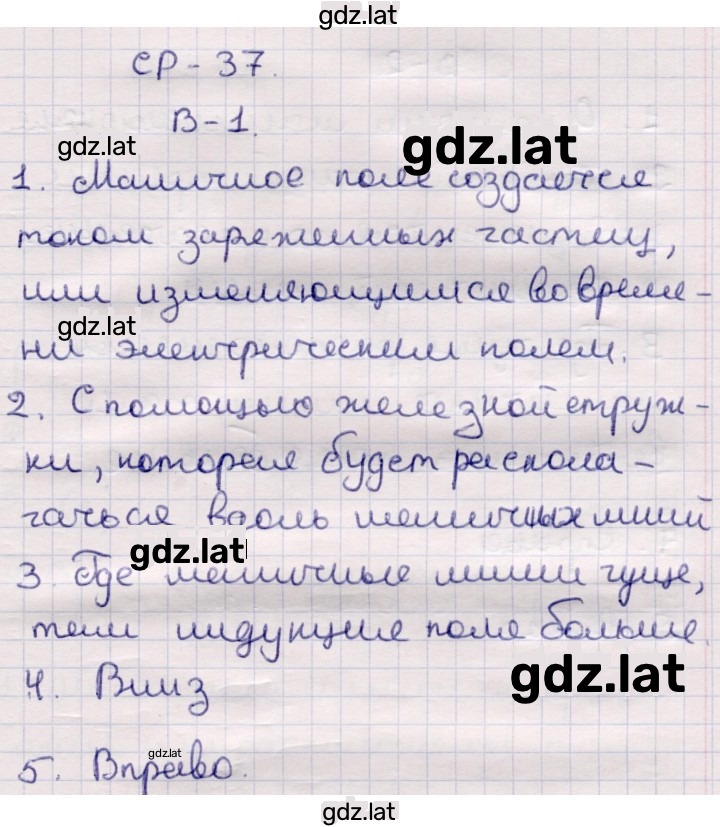 gdz.lat
СР - 37.
В - 1.
gdz.lat
gdz.lat
1. Магнитное поле создается
током заряженных частиц,
или изменяющимся во време-
gdz.lat
ни электрическим полем.
2. С помощью железной струж-
ки, которая будет распола-
гаться вдоль магнитных линий
gdz.lat
3. Где магнитные линии гуще,
там индукция поля больше.
gdz.lat
4. Вниз
gdz.lat
5. Вправо.
gdz.lat